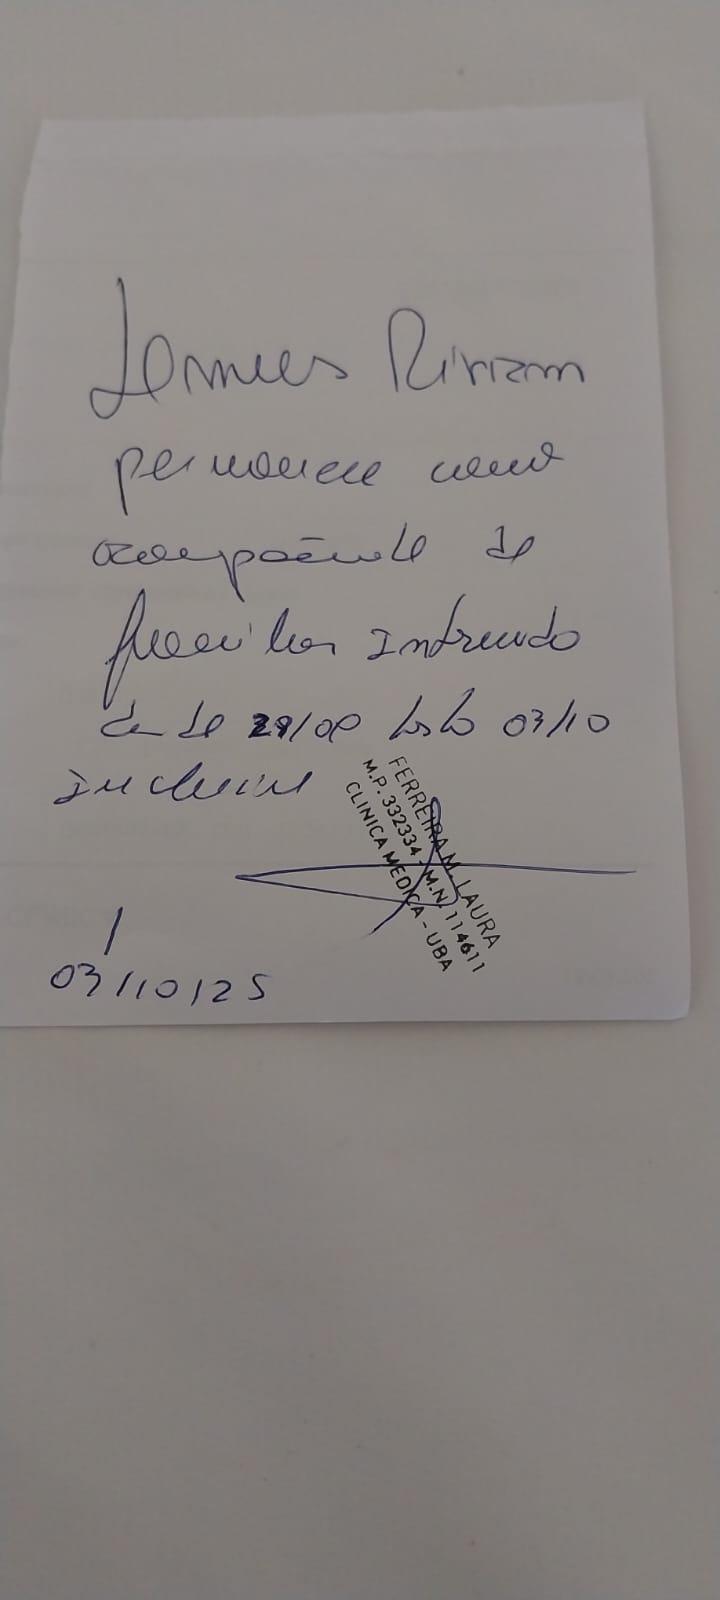 permanece como
acompañante de
familiar internado
desde 29/09 hasta 03/10
inclusive
FERREIRA M. LAURA
M.P. 332334 M.N. 114611
CLINICA MEDICA - UBA
03/10/25